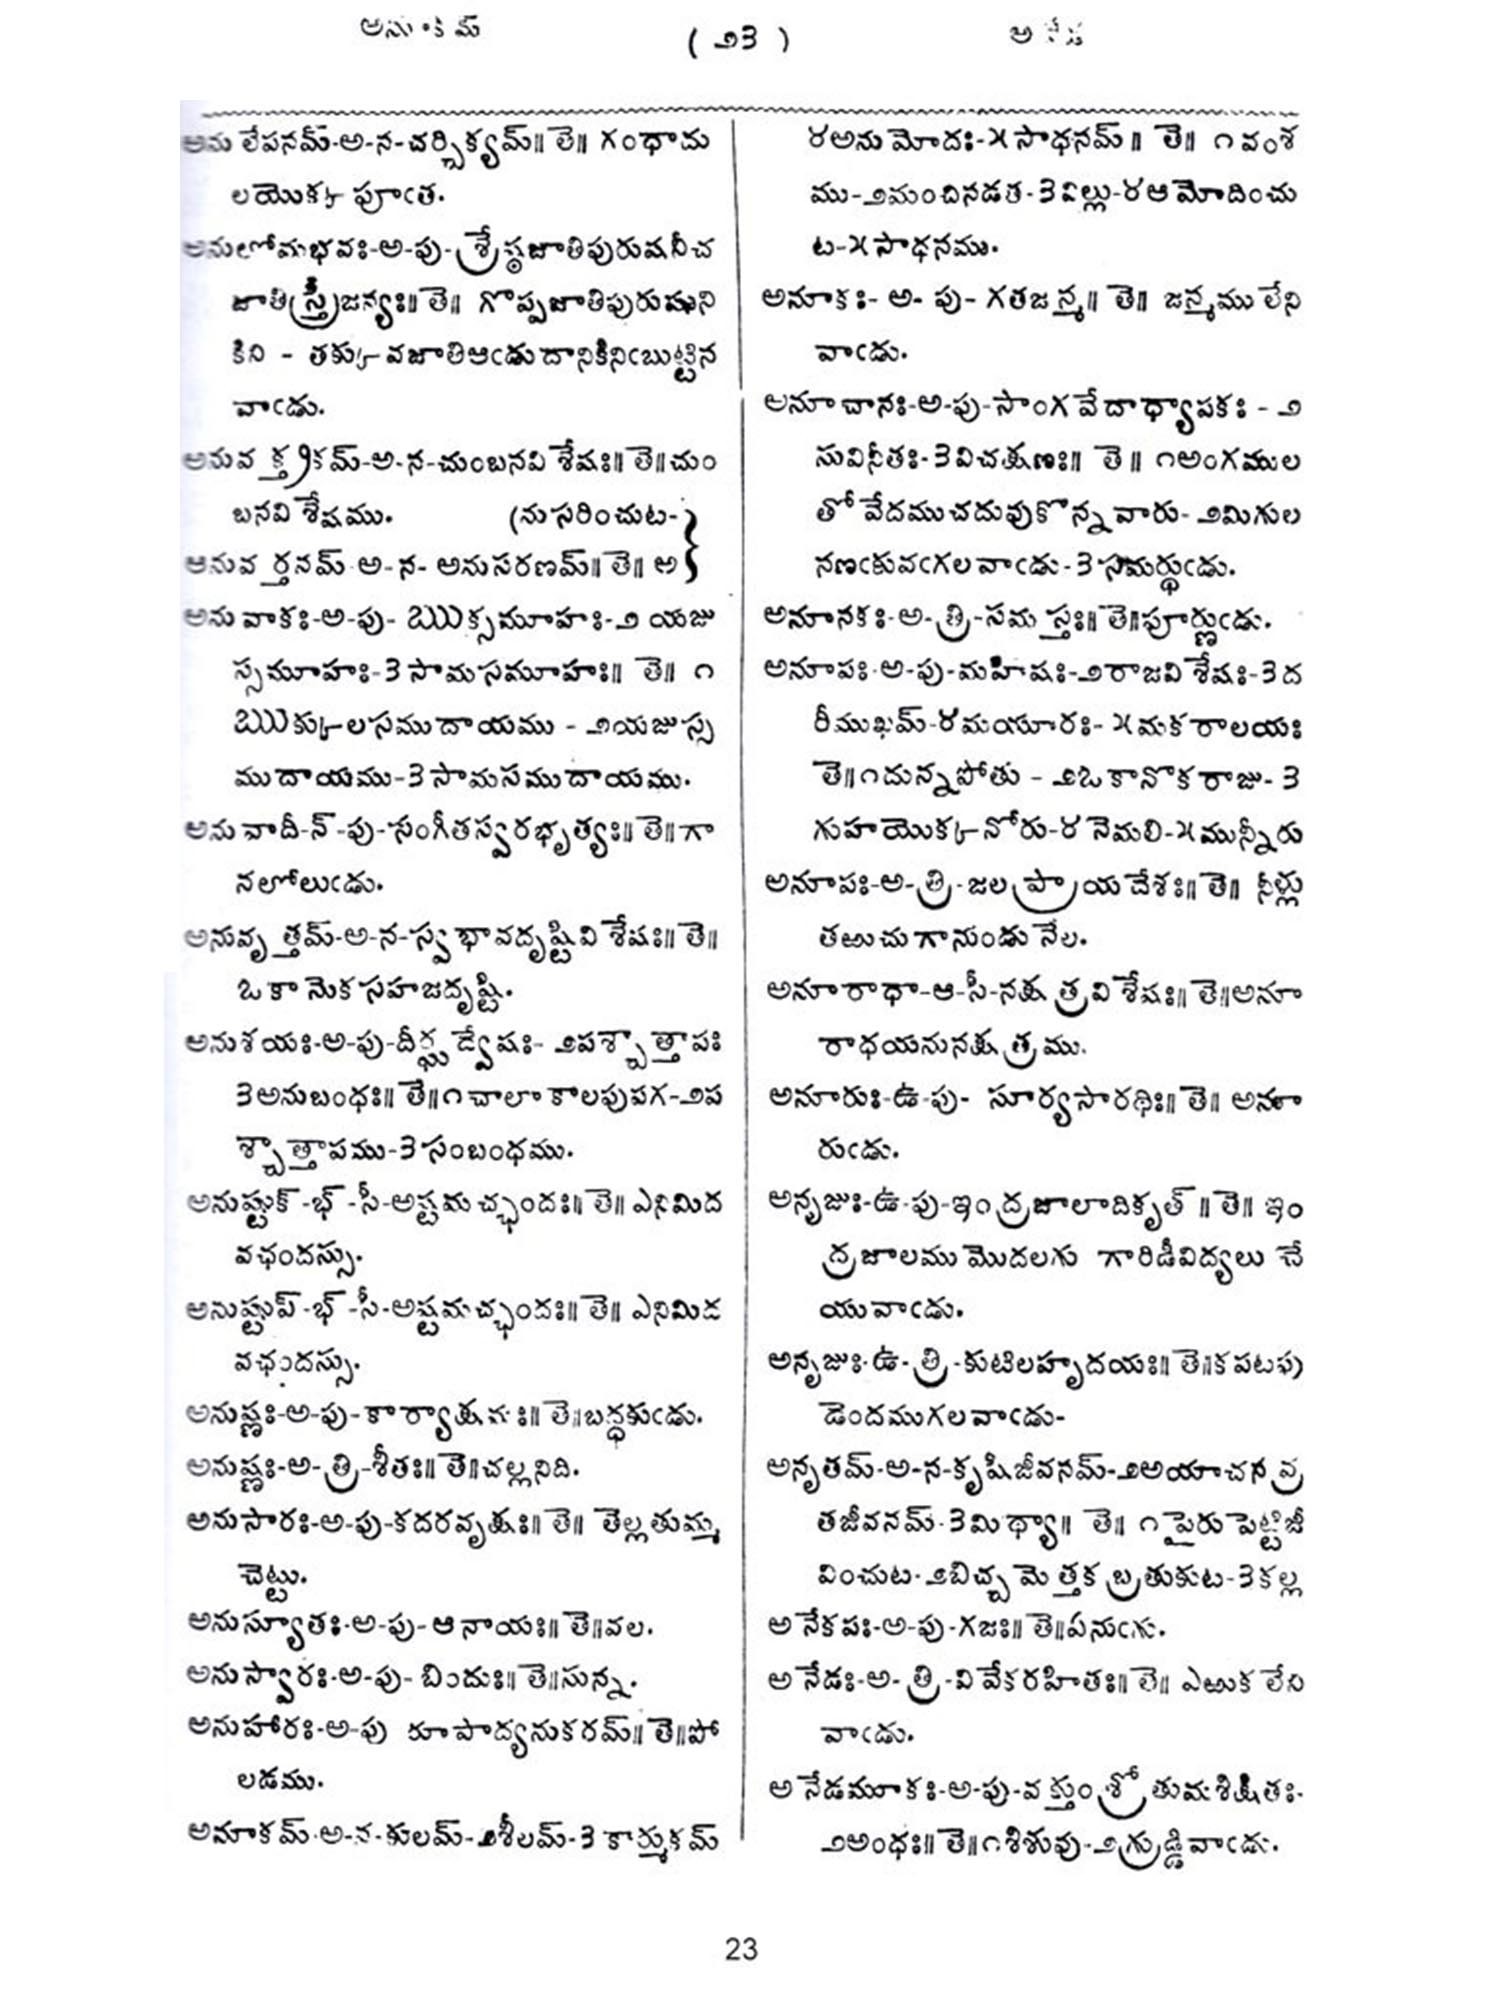 అనూకమ్ ( ౨౩ ) అనేడ
అనులేపనమ్-అ-న-చర్చిక్యమ్॥ తె॥ గంధాదు
లయొక్క పూఁత.
అనులోమభవః-అ-పు-శ్రేష్ఠజాతిపురుషనీచ
జాతిస్త్రీజన్యః॥ తె॥ గొప్పజాతిపురుషుని
కిని - తక్కువజాతిఆఁడుదానికినిఁబుట్టిన
వాఁడు.
అనువక్త్రికమ్-అ-న-చుంబనవిశేషః॥ తె॥చుం
బనవిశేషము. (నుసరించుట-
అనువర్తనమ్-అ-న- అనుసరణమ్॥ తె॥ అ
అనువాకః-అ-పు- ఋక్సమూహః-౨ యజు
స్సమూహః-౩ సామసమూహః॥ తె॥ ౧
ఋక్కులసముదాయము - ౨యజుస్స
ముదాయము-౩ సామసముదాయము.
అనువాదీ-న్-పు-సంగీతస్వరభృత్యః॥ తె॥గా
నలోలుఁడు.
అనువృత్తమ్-అ-న-స్వభావదృష్టివిశేషః॥ తె॥
ఒకానొకసహజదృష్టి.
అనుశయః-అ-పు-దీర్ఘద్వేషః- ౨పశ్చాత్తాపః
౩అనుబంధః॥ తె॥౧చాలాకాలపుపగ-౨ప
శ్చాత్తాపము-౩సంబంధము.
అనుష్టుక్-భ్-సీ-అష్టమచ్ఛందః॥ తె॥ ఎనిమిద
వఛందస్సు.
అనుష్టుప్-భ్-సీ-అష్టమచ్ఛందః॥ తె॥ ఎనిమిద
వఛందస్సు.
అనుష్ణః-అ-పు-కార్యాక్షమః॥ తె॥బద్ధకుఁడు.
అనుష్ణః-అ-త్రి-శీతః॥ తె॥చల్లనిది.
అనుసారః-అ-పు-కదరవృక్షః॥ తె॥ తెల్లతుమ్మ
చెట్టు.
అనుస్యూతః-అ-పు-ఆనాయః॥ తె॥వల.
అనుస్వారః-అ-పు- బిందుః॥ తె॥సున్న.
అనుహారః-అ-పు రూపాద్యనుకరమ్॥ తె॥పో
లడము.
అనూకమ్-అ-న-కులమ్-౨శీలమ్-౩ కార్ముకమ్
౪అనుమోదః-౫సాధనమ్॥ తె॥ ౧వంశ
ము-౨మంచినడత-౩విల్లు-౪ఆమోదించు
ట-౫సాధనము.
అనూకః- అ- పు- గతజన్మ॥ తె॥ జన్మములేని
వాఁడు.
అనూచానః-అ-పు-సాంగవేదాధ్యాపకః - ౨
సువినీతః-౩విచక్షణః॥ తె॥ ౧అంగముల
తోవేదముచదువుకొన్నవారు-౨మిగుల
నణఁకువఁగలవాఁడు-౩సమర్థుఁడు.
అనూనకః-అ-త్రి-సమస్తః॥తె॥పూర్ణుఁడు.
అనూపః-అ-పు-మహిషః-౨రాజవిశేషః-౩ద
రీముఖమ్-౪మయూరః-౫మకరాలయః
తె॥౧దున్నపోతు - ౨ఒకానొకరాజు-౩
గుహయొక్కనోరు-౪నెమలి-౫మున్నీరు
అనూపః-అ-త్రి-జలప్రాయదేశః॥ తె॥ నీళ్లు
తఱుచుగానుండునేల.
అనూరాధా-ఆ-సీ-నక్షత్రవిశేషః॥ తె॥అనూ
రాధయనునక్షత్రము.
అనూరుః-ఉ-పు- సూర్యసారథిః॥ తె॥ అనూ
రుఁడు.
అనృజుః-ఉ-పు-ఇంద్రజాలాదికృత్॥ తె॥ ఇం
ద్రజాలముమొదలగు గారిడీవిద్యలు చే
యువాఁడు.
అనృజుః-ఉ-త్రి-కుటిలహృదయః॥ తె॥కపటపు
డెందముగలవాఁడు-
అనృతమ్-అ-న-కృషిజీవనమ్-౨అయాచనవ్ర
తజీవనమ్-౩మిథ్యా॥ తె॥ ౧పైరుపెట్టిజీ
వించుట-౨బిచ్చమెత్తకబ్రతుకుట-౩కల్ల
అనేకపః-అ-పు-గజః॥ తె॥ఏనుఁగు.
అనేడః-అ-త్రి-వివేకరహితః॥ తె॥ ఎఱుకలేని
వాఁడు.
అనేడమూకః-అ-పు-వక్తుంశ్రోతుమశిక్షితః-
౨అంధః॥ తె॥౧శిశువు-౨గ్రుడ్డివాఁడు.
23